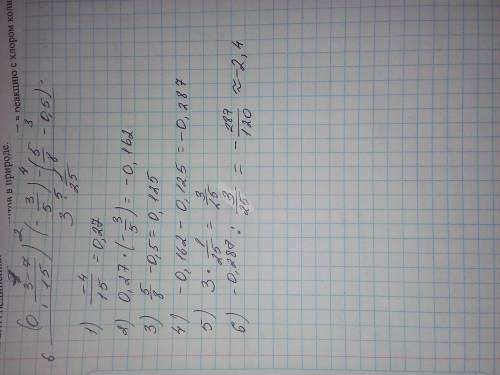 в природе.
реакцию с хлором
6 (0, 3-7/15)² (-3/5)⁴ - (5/8 - 0,5)³ =
3 · 5/25
1) -4/15 = 0,27
2) 0,27 · (-3/5) = -0,162
3) 5/8 - 0,5 = 0,125
4) -0,162 - 0,125 = -0,287
5) 3 · 1/25 = 3/25
6) -0,287 : 3/25 = -287/120 ≈ -2,4